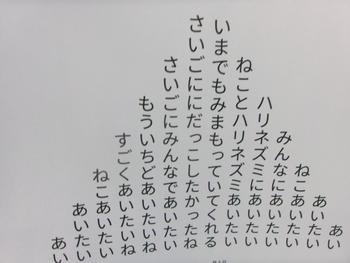 あい
あいたい
ねこあいたい
みんなにあいたい
ハリネズミにあいたい
ねことハリネズミあいたい
いまでもみまもっていてくれる
さいごににだっこしたかったね
さいごにみんなであいたいね
もういちどあいたいね
すごくあいたいね
ねこあいたい
あいたい
あい